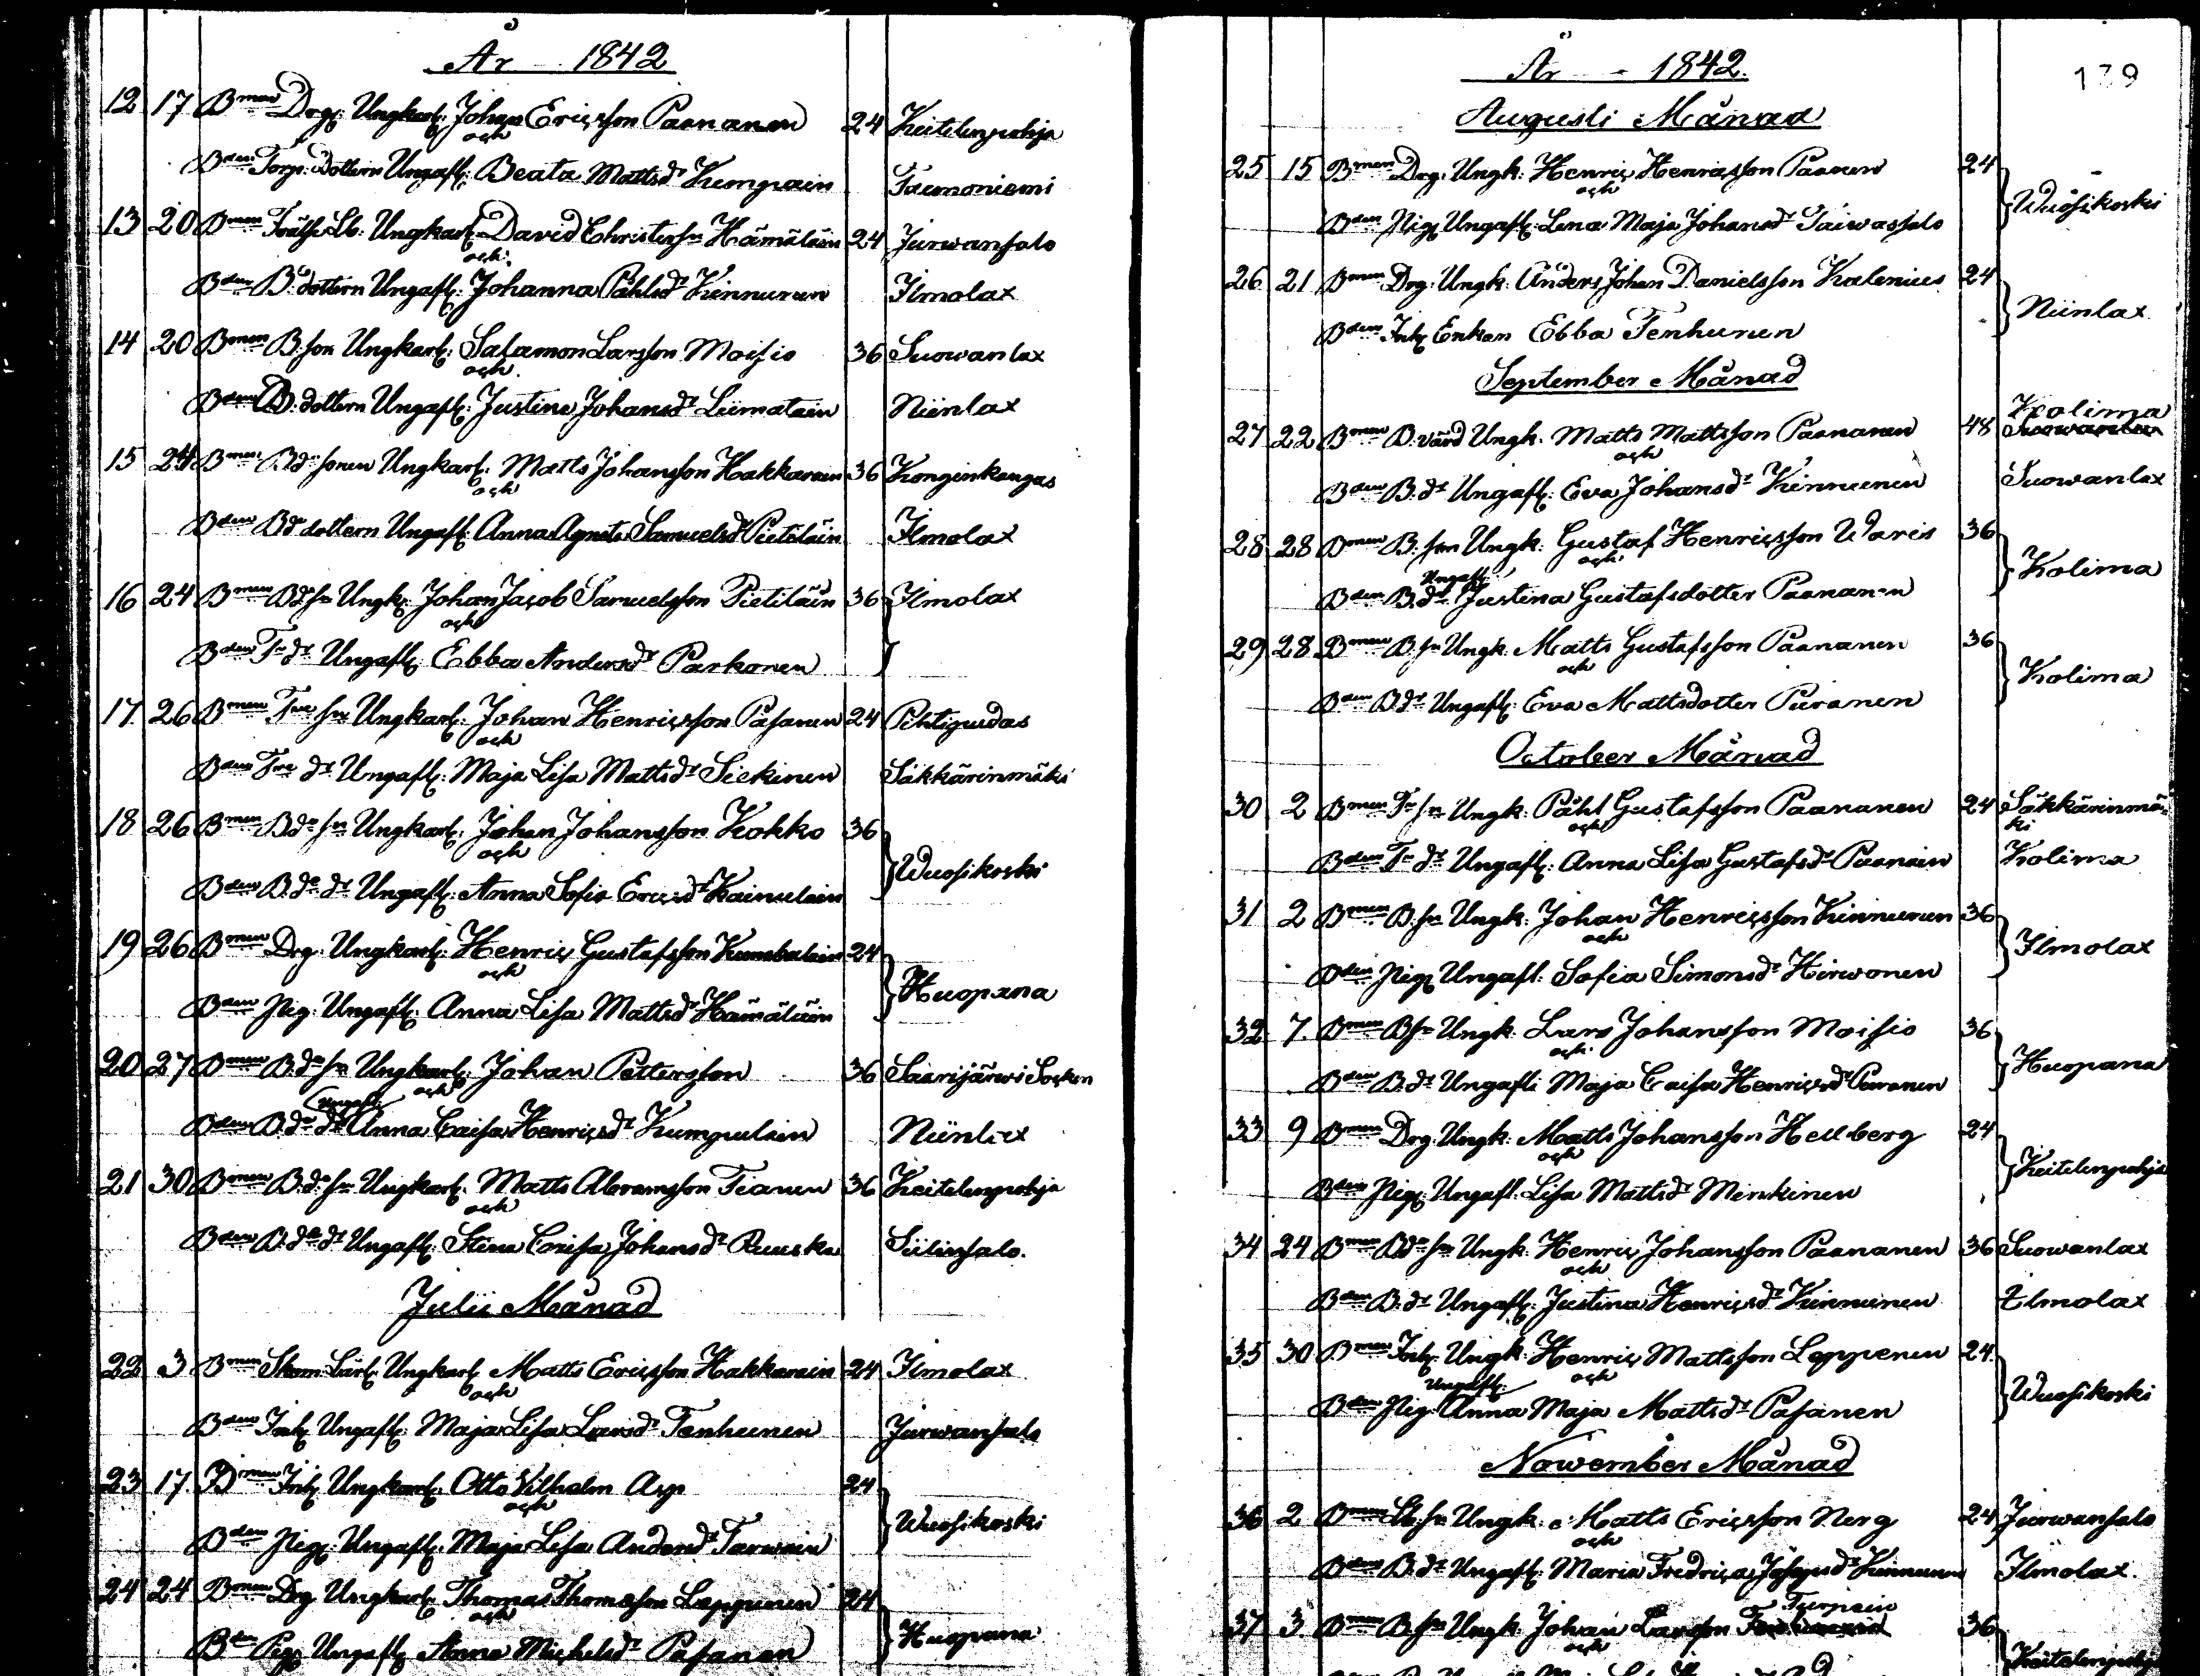 År 1842
12 17 Bmen Drg. Ungkarl. Johan Ericsson Paananen 24 Keitelenpohja
och
Bden Torp. Dottern Ungaft. Beata Mattsdr Kumpain
13 20 Bmen Ungkarl. David Christersn Hämäläin 24 Jurwansalo
och
Bden B. dottern Ungaft. Johanna Påhlsdr Kinnunen Ilmolax
14 20 Bmen B. son Ungkarl. Salamon Larsson Moisio 36 Suowanlax
och
Bden B. dottern Ungaft. Justina Johansdr Liimatain Niinlax
15 24 Bmen Bde sonen Ungkarl. Matts Johansson Hakkarain 36 Konginkangas
och
Bden Bde dottern Ungaft. Anna Agneta Samuelsdr Pietiläin Ilmolax
16 24 Bmen Bde sn Ungk. Johan Jacob Samuelsson Pietiläin 36 Ilmolax
och
Bden Tr dr Ungaft. Ebba Andersdr Parkonen
17 26 Bmen Tre sn Ungkarl. Johan Henricsson Pasanen 24 Pihtipudas
och
Bden Tre dr Ungaft. Maja Lisa Mattsdr Siekinen Säkkärinmäki
18 26 Bmen Bde sn Ungkarl. Johan Johansson Kokko 36
och
Wuosikoski
Bden B. de dr Ungaft. Anna Sofia Ericsdr Kainulain
19 26 Bmen Drg. Ungkarl. Henric Gustafsson Kumbulain 24
och
Huopana
Bden Pig. Ungaft. Anna Lisa Mattsdr Hämäläin
20 27 Bmen B. de sn Ungkarl. Johan Pettersson 36 Saarijärwi Socken
och
Ungaft.
Bden B. de dr Anna Caisa Henricsdr Kumpulain Niinlax
21 30 Bmen B. de sn Ungkarl. Matts Abramsson Tianen 36 Keitelenpohja
och
Bden B. de dr Ungaft. Stina Caisa Johansdr Ruuska Siilinsalo.
Julii Månad
22 3 Bmen Skom. Lärl. Ungkarl. Matts Ericsson Hakkarain 24 Ilmolax
och
Bden Inh. Ungaft. Maja Lisa Larsdr Tenhunen Jurwansalo
23 17. Bmen Inh. Ungkarl. Otto Vilhelm Asp 24
och
Wuosikoski
Bden Pig. Ungaft. Maja Lisa Andersdr Tarwain
24 24 Bmen Drg. Ungkarl. Thomas Thomasson Leppänen 24
och
Huopana
Bden Pig. Ungaft. Anna Michelsdr Pasanen
År 1842.
139
Augusti Månad
25 15 Bmen Drg. Ungk. Henric Henricsson Paanen 24
och
Wuosikoski
Bden Pig. Ungaft. Lena Maja Johansdr Taiwassalo
26 21 Bmen Drg. Ungk. Anders Johan Danielsson Kalenius 24
Niinlax
Bden Inh. Enkan Ebba Tenhunen
September Månad
Kolima
27 22 Bmen B. värd Ungk. Matts Mattsson Paananen 48 Suowanlax
och
Bden B. dr Ungaft. Eva Johansdr Kinnunen Suowanlax
28 28 Bmen B. son Ungk. Gustaf Henricsson Waris 36
och
Kolima
Ungaft.
Bden B. dr Justina Gustafsdotter Paananen
29 28 Bmen B. sn Ungk. Matts Gustafsson Paananen 36
och
Kolima
Bden B. dr Ungaft. Eva Mattsdotter Puranen
October Månad
30 2 Bmen Tr sn Ungk. Påhl Gustafsson Paananen 24 Säkkärinmä=
och
ki
Bden Tr dr Ungaft. Anna Lisa Gustafsdr Paanain Kolima
31 2 Bmen B. sn Ungk. Johan Henricsson Kinnunen 36
och
Ilmolax
Bden Pig. Ungaft. Sofia Simonsdr Hirwonen
32 7. Bmen B sn Ungk. Lars Johansson Moisio 36
och
Huopana
Bden B. dr Ungaft. Maja Caisa Henricsdr Paananen
33 9 Bmen Drg. Ungk. Matts Johansson Hellberg 24
och
Keitelenpohja
Bden Pig. Ungaft. Lisa Mattsdr Minkinen
34 24 Bmen Bde sn Ungk. Henric Johansson Paananen 36 Suowanlax
och
Bden B. dr Ungaft. Justina Henricsdr Kinnunen Ilmolax
35 30 Bmen Inh. Ungk. Henric Mattsson Leppenen 24
och
Wuosikoski
Ungaft.
Bden Pig. Anna Maja Mattsdr Pasanen
Nowember Månad
36 2 Bmen Lb. sn Ungk. Matts Ericsson Nerg 24 Jurwansalo
och
Bden B. dr Ungaft. Maria Fredrica Kinnunen Ilmolax.
Turpein
37 3 Bmen B. sn Ungk. Johan Larsson 36
och
Keitelenpohja